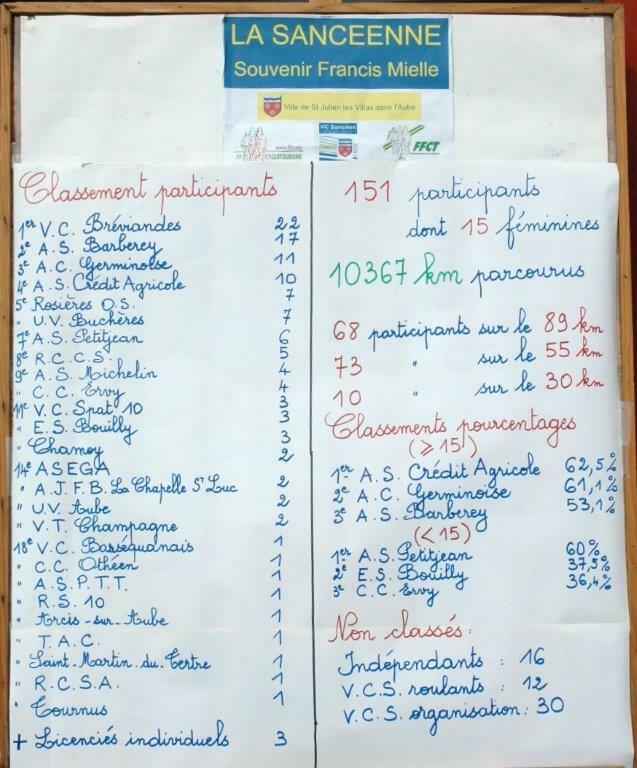 LA SANCEENNE
Souvenir Francis Mielle
Ville de St Julien les Villas dans l'Aube
VC Sancéen
FFCT
CYCLOTOURISME
Classement participants
1er V.C. Bréviandes 22
2e A.S. Barberey 17
3e A.C. Germinoise 11
4e A.S. Crédit Agricole 10
5e Rosières O.S. 7
" U.V. Buchères 7
7e A.S. Petitjean 6
8e R.C.C.S. 5
9e A.S. Michelin 4
" C.C. Ervy 4
11e V.C. Spat. 10 3
" E.S. Bouilly 3
" Chamoy 3
14e ASEGA 2
" A.J.F.B. La Chapelle St Luc 2
" U.V. Aube 2
" V.T. Champagne 2
18e V.C. Barséquanais 1
" C.C. Othéen 1
" A.S.P.T.T. 1
" R.S. 10 1
" Arcis-sur-Aube 1
" T.A.C. 1
" Saint-Martin-du-Tertre 1
" R.C.S.A. 1
" Tournus 1
+ Licenciés individuels 3
151 participants
dont 15 féminines
10367 km parcourus
68 participants sur le 89 km
73 " sur le 55 km
10 " sur le 30 km
Classements pourcentages
(⩾ 15)
1er A.S. Crédit Agricole 62,5%
2e A.C. Germinoise 61,1%
3e A.S. Barberey 53,1%
(< 15)
1er A.S. Petitjean 60%
2e E.S. Bouilly 37,5%
3e C.C. Ervy 36,4%
Non classés :
Indépendants : 16
V.C.S. roulants : 12
V.C.S. organisation : 30